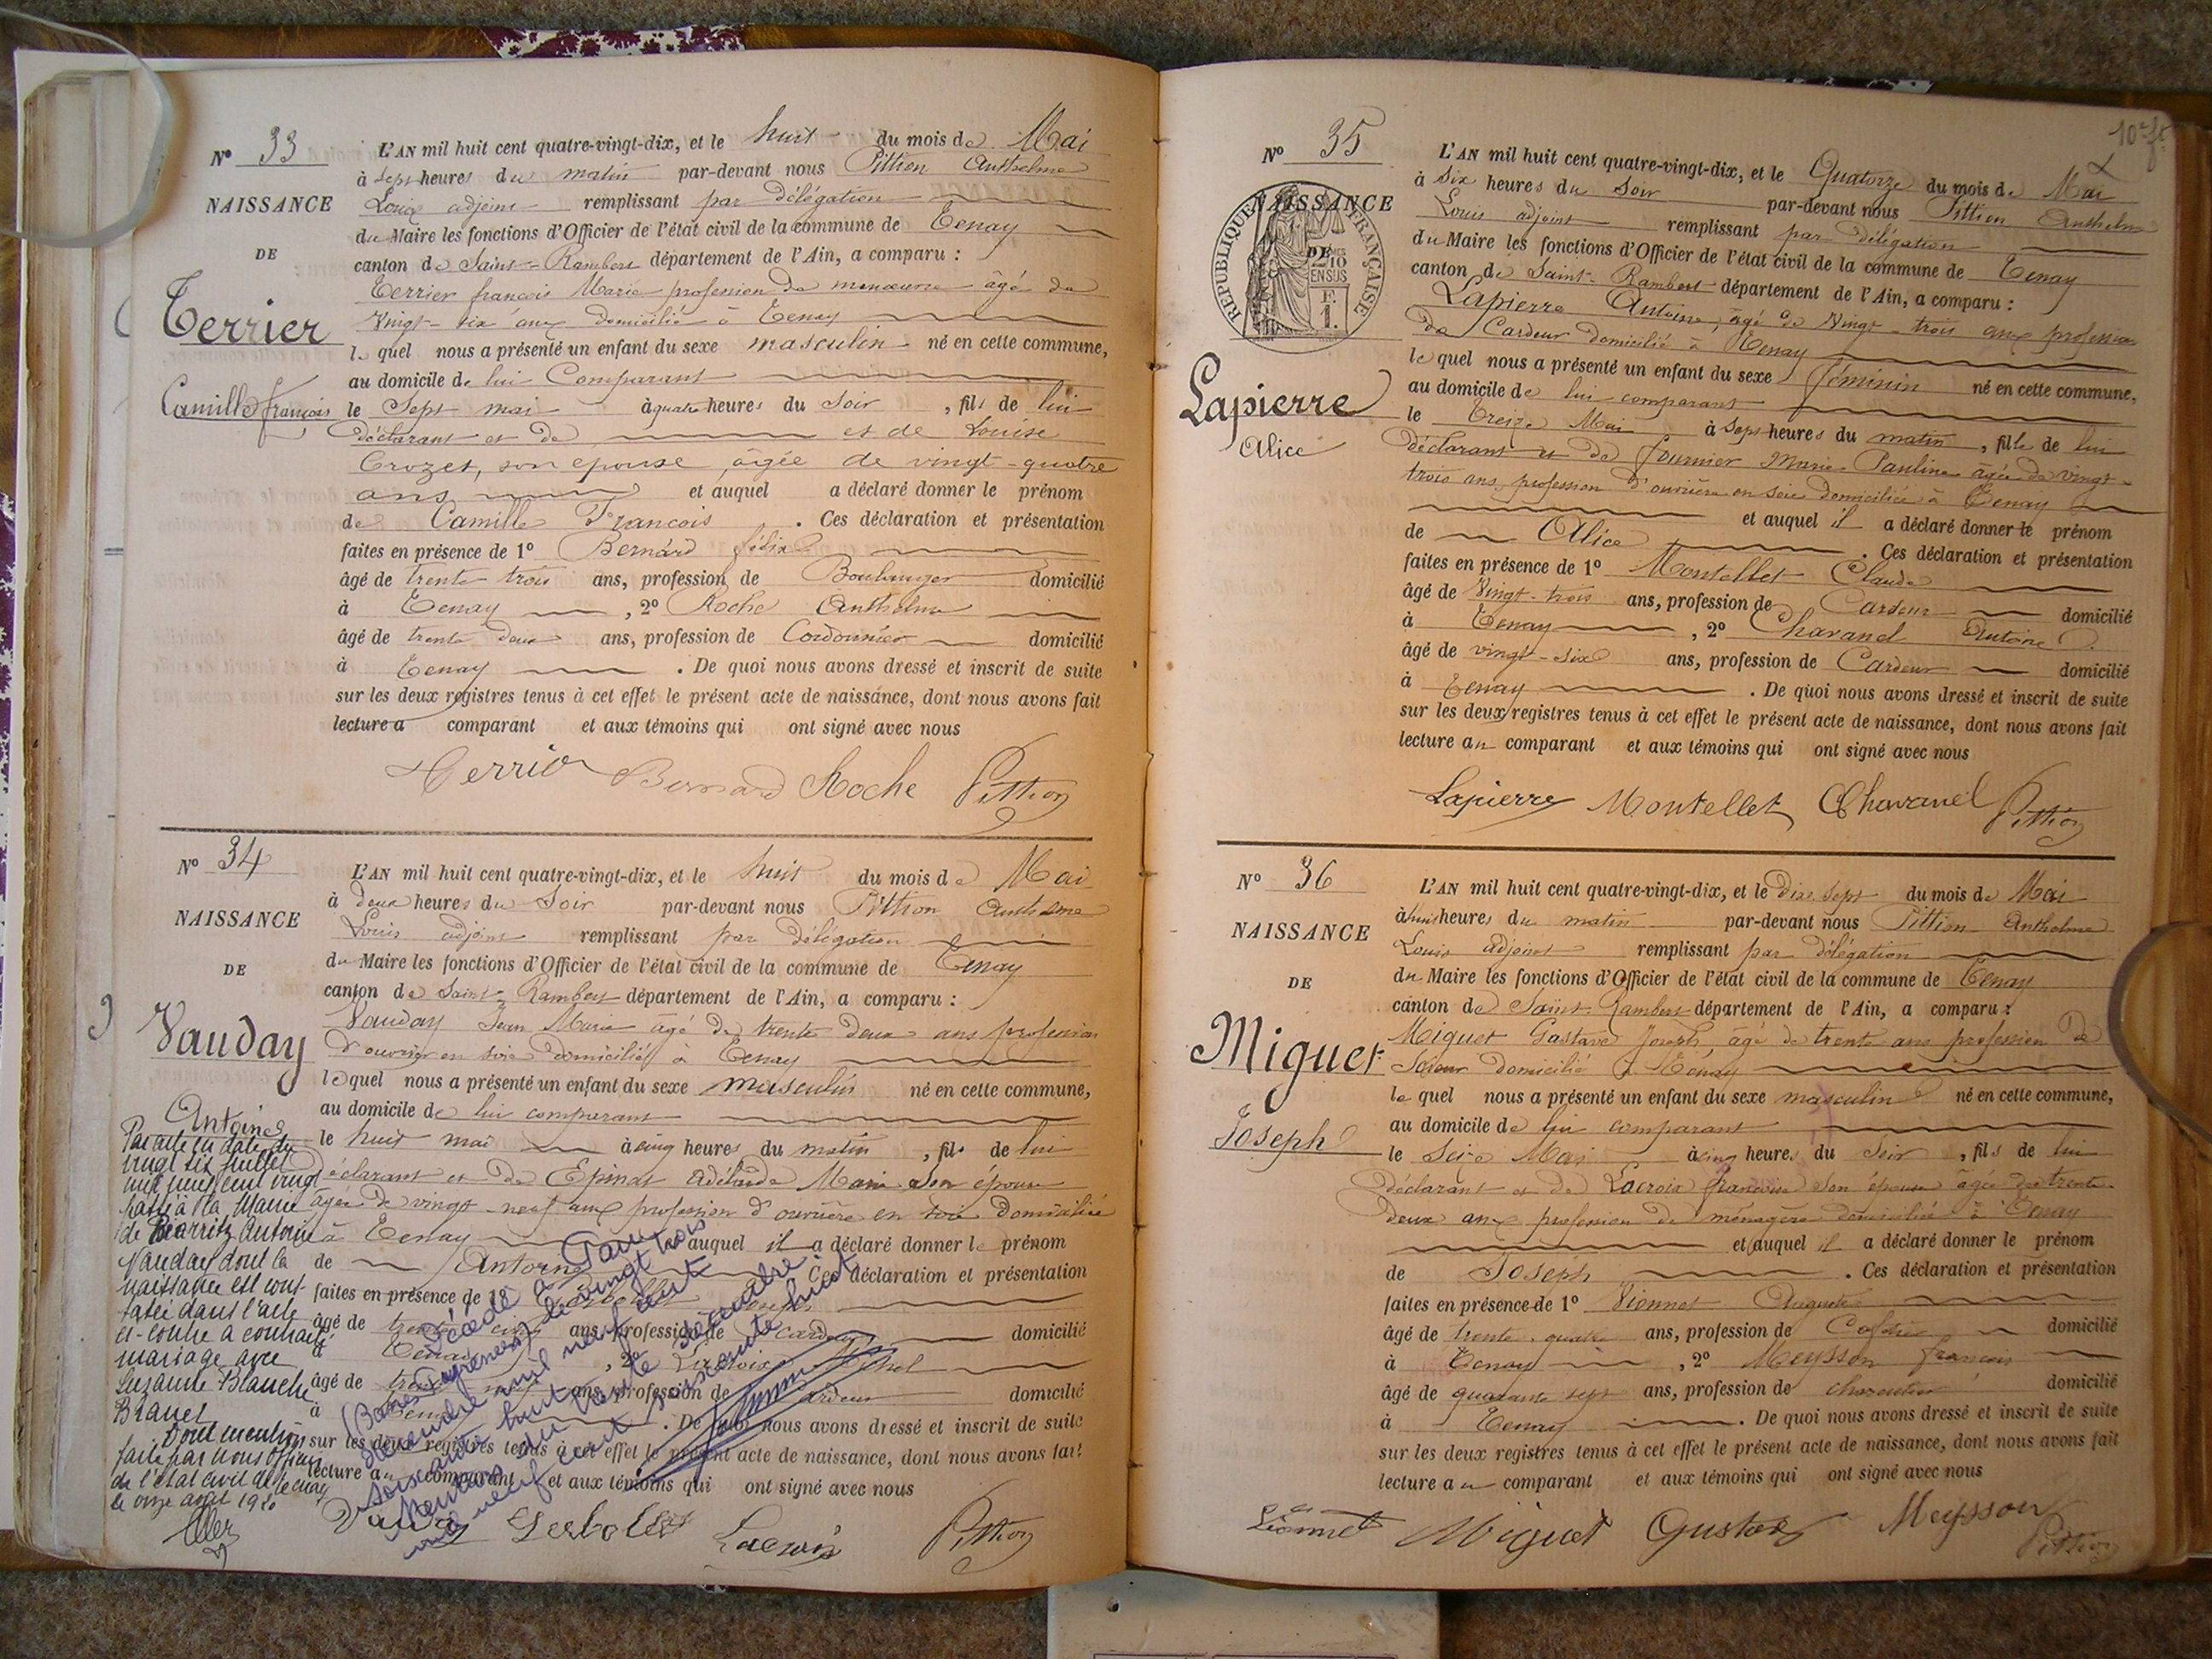 N° 33
NAISSANCE
DE
Terrier
Camille françois
L'AN mil huit cent quatre-vingt-dix, et le huit du mois de Mai
à sept heures du matin par-devant nous Pittion Anthelme
Louis adjoint remplissant par délégation
du Maire les fonctions d'Officier de l'état civil de la commune de Tenay
canton de Saint-Rambert département de l'Ain, a comparu :
Terrier françois Marie profession de manœuvre âgé de
vingt-six ans domicilié à Tenay
lequel nous a présenté un enfant du sexe masculin né en cette commune,
au domicile de lui Comparant
le Sept mai à quatre heures du Soir, fils de lui
déclarant et de et de Louise
Crozet, son epouse, âgée de vingt-quatre
ans et auquel a déclaré donner le prénom
de Camille Francois. Ces déclaration et présentation
faites en présence de 1° Bernard félix
âgé de trente trois ans, profession de Boulanger domicilié
à Tenay, 2° Roche Anthelme
âgé de trente deux ans, profession de Cordonnier domicilié
à Tenay. De quoi nous avons dressé et inscrit de suite
sur les deux registres tenus à cet effet le présent acte de naissance, dont nous avons fait
lecture a comparant et aux témoins qui ont signé avec nous
Terrier Bernard Roche Pittion
N° 34
NAISSANCE
DE
Vauday
Antoine
L'AN mil huit cent quatre-vingt-dix, et le huit du mois de Mai
à deux heures du Soir par-devant nous Pittion Anthelme
Louis adjoint remplissant par délégation
du Maire les fonctions d'Officier de l'état civil de la commune de Tenay
canton de Saint-Rambert département de l'Ain, a comparu :
Vauday Jean Marie âgé de trente deux ans profession
d'ouvrier en soie domicilié à Tenay
lequel nous a présenté un enfant du sexe masculin né en cette commune,
au domicile de lui comparant
le huit mai à cinq heures du matin, fils de lui
déclarant et de Epinat Adélaïde Marie son épouse
agée de vingt-neuf ans profession d'ouvrière en soie domiciliée
à Tenay auquel il a déclaré donner le prénom
de Antoine Ces déclaration et présentation
faites en présence de 1°
âgé de trente cinq ans, profession de cardeur domicilié
à Tenay, 2° Lacroix Michel
âgé de ans, profession de cardeur domicilié
à Tenay. De quoi nous avons dressé et inscrit de suite
sur les deux registres tenus à cet effet le présent acte de naissance, dont nous avons fait
lecture au comparant et aux témoins qui ont signé avec nous
Vauday Lacroix Pittion
Par acte en date du
vingt six Juillet
mil neuf cent vingt
passé à la Mairie
de Biarritz Antoine
Vauday dont la
naissance est cons-
tatée dans l'acte
ci-contre a contracté
mariage avec
Suzanne Blanche
Dont mention
faite par nous Officier
de l'état civil de Tenay
le onze août 1920
Décédé à
(Basses Pyrénées) le vingt trois
décembre mil neuf cent
soixante huit
Mention du trente décembre
mil neuf cent soixante huit
10e ft
N° 35
NAISSANCE
DE
REPUBLIQUE FRANÇAISE
Lapierre
Alice
L'AN mil huit cent quatre-vingt-dix, et le Quatorze du mois de Mai
à Six heures du Soir par-devant nous Pittion Anthelme
Louis adjoint remplissant par délégation
du Maire les fonctions d'Officier de l'état civil de la commune de Tenay
canton de Saint-Rambert département de l'Ain, a comparu :
Lapierre Antoine, âgé de Vingt-trois ans profession
de Cardeur domicilié à Tenay
lequel nous a présenté un enfant du sexe féminin né en cette commune,
au domicile de lui comparant
le treize Mai à Sept heures du matin, fille de lui
déclarant et de fournier Marie Pauline âgée de vingt-
trois ans, profession d'ouvrière en soie domiciliée à Tenay
et auquel il a déclaré donner le prénom
de Alice. Ces déclaration et présentation
faites en présence de 1° Montellet Claude
âgé de Vingt-trois ans, profession de Cardeur domicilié
à Tenay, 2° Chavanel Antoine
âgé de vingt-six ans, profession de Cardeur domicilié
à Tenay. De quoi nous avons dressé et inscrit de suite
sur les deux registres tenus à cet effet le présent acte de naissance, dont nous avons fait
lecture au comparant et aux témoins qui ont signé avec nous
Lapierre Montellet Chavanel Pittion
N° 36
NAISSANCE
DE
Miguet
Joseph
L'AN mil huit cent quatre-vingt-dix, et le dix sept du mois de Mai
à huit heures du matin par-devant nous Pittion Anthelme
Louis adjoint remplissant par délégation
du Maire les fonctions d'Officier de l'état civil de la commune de Tenay
canton de Saint-Rambert département de l'Ain, a comparu :
Miguet Gustave Joseph, âgé de trente ans profession de
Scieur domicilié à Tenay
lequel nous a présenté un enfant du sexe masculin né en cette commune,
au domicile de lui comparant
le Seize Mai à cinq heures du Soir, fils de lui
déclarant et de Lacroix françoise son épouse âgée de trente-
deux ans profession de ménagère domiciliée à Tenay
et auquel il a déclaré donner le prénom
de Joseph. Ces déclaration et présentation
faites en présence de 1° Vionnet Auguste
âgé de trente-quatre ans, profession de domicilié
à Tenay, 2° Meysson françois
âgé de quarante sept ans, profession de charpentier domicilié
à Tenay. De quoi nous avons dressé et inscrit de suite
sur les deux registres tenus à cet effet le présent acte de naissance, dont nous avons fait
lecture au comparant et aux témoins qui ont signé avec nous
Vionnet Miguet Gustave Meysson Pittion